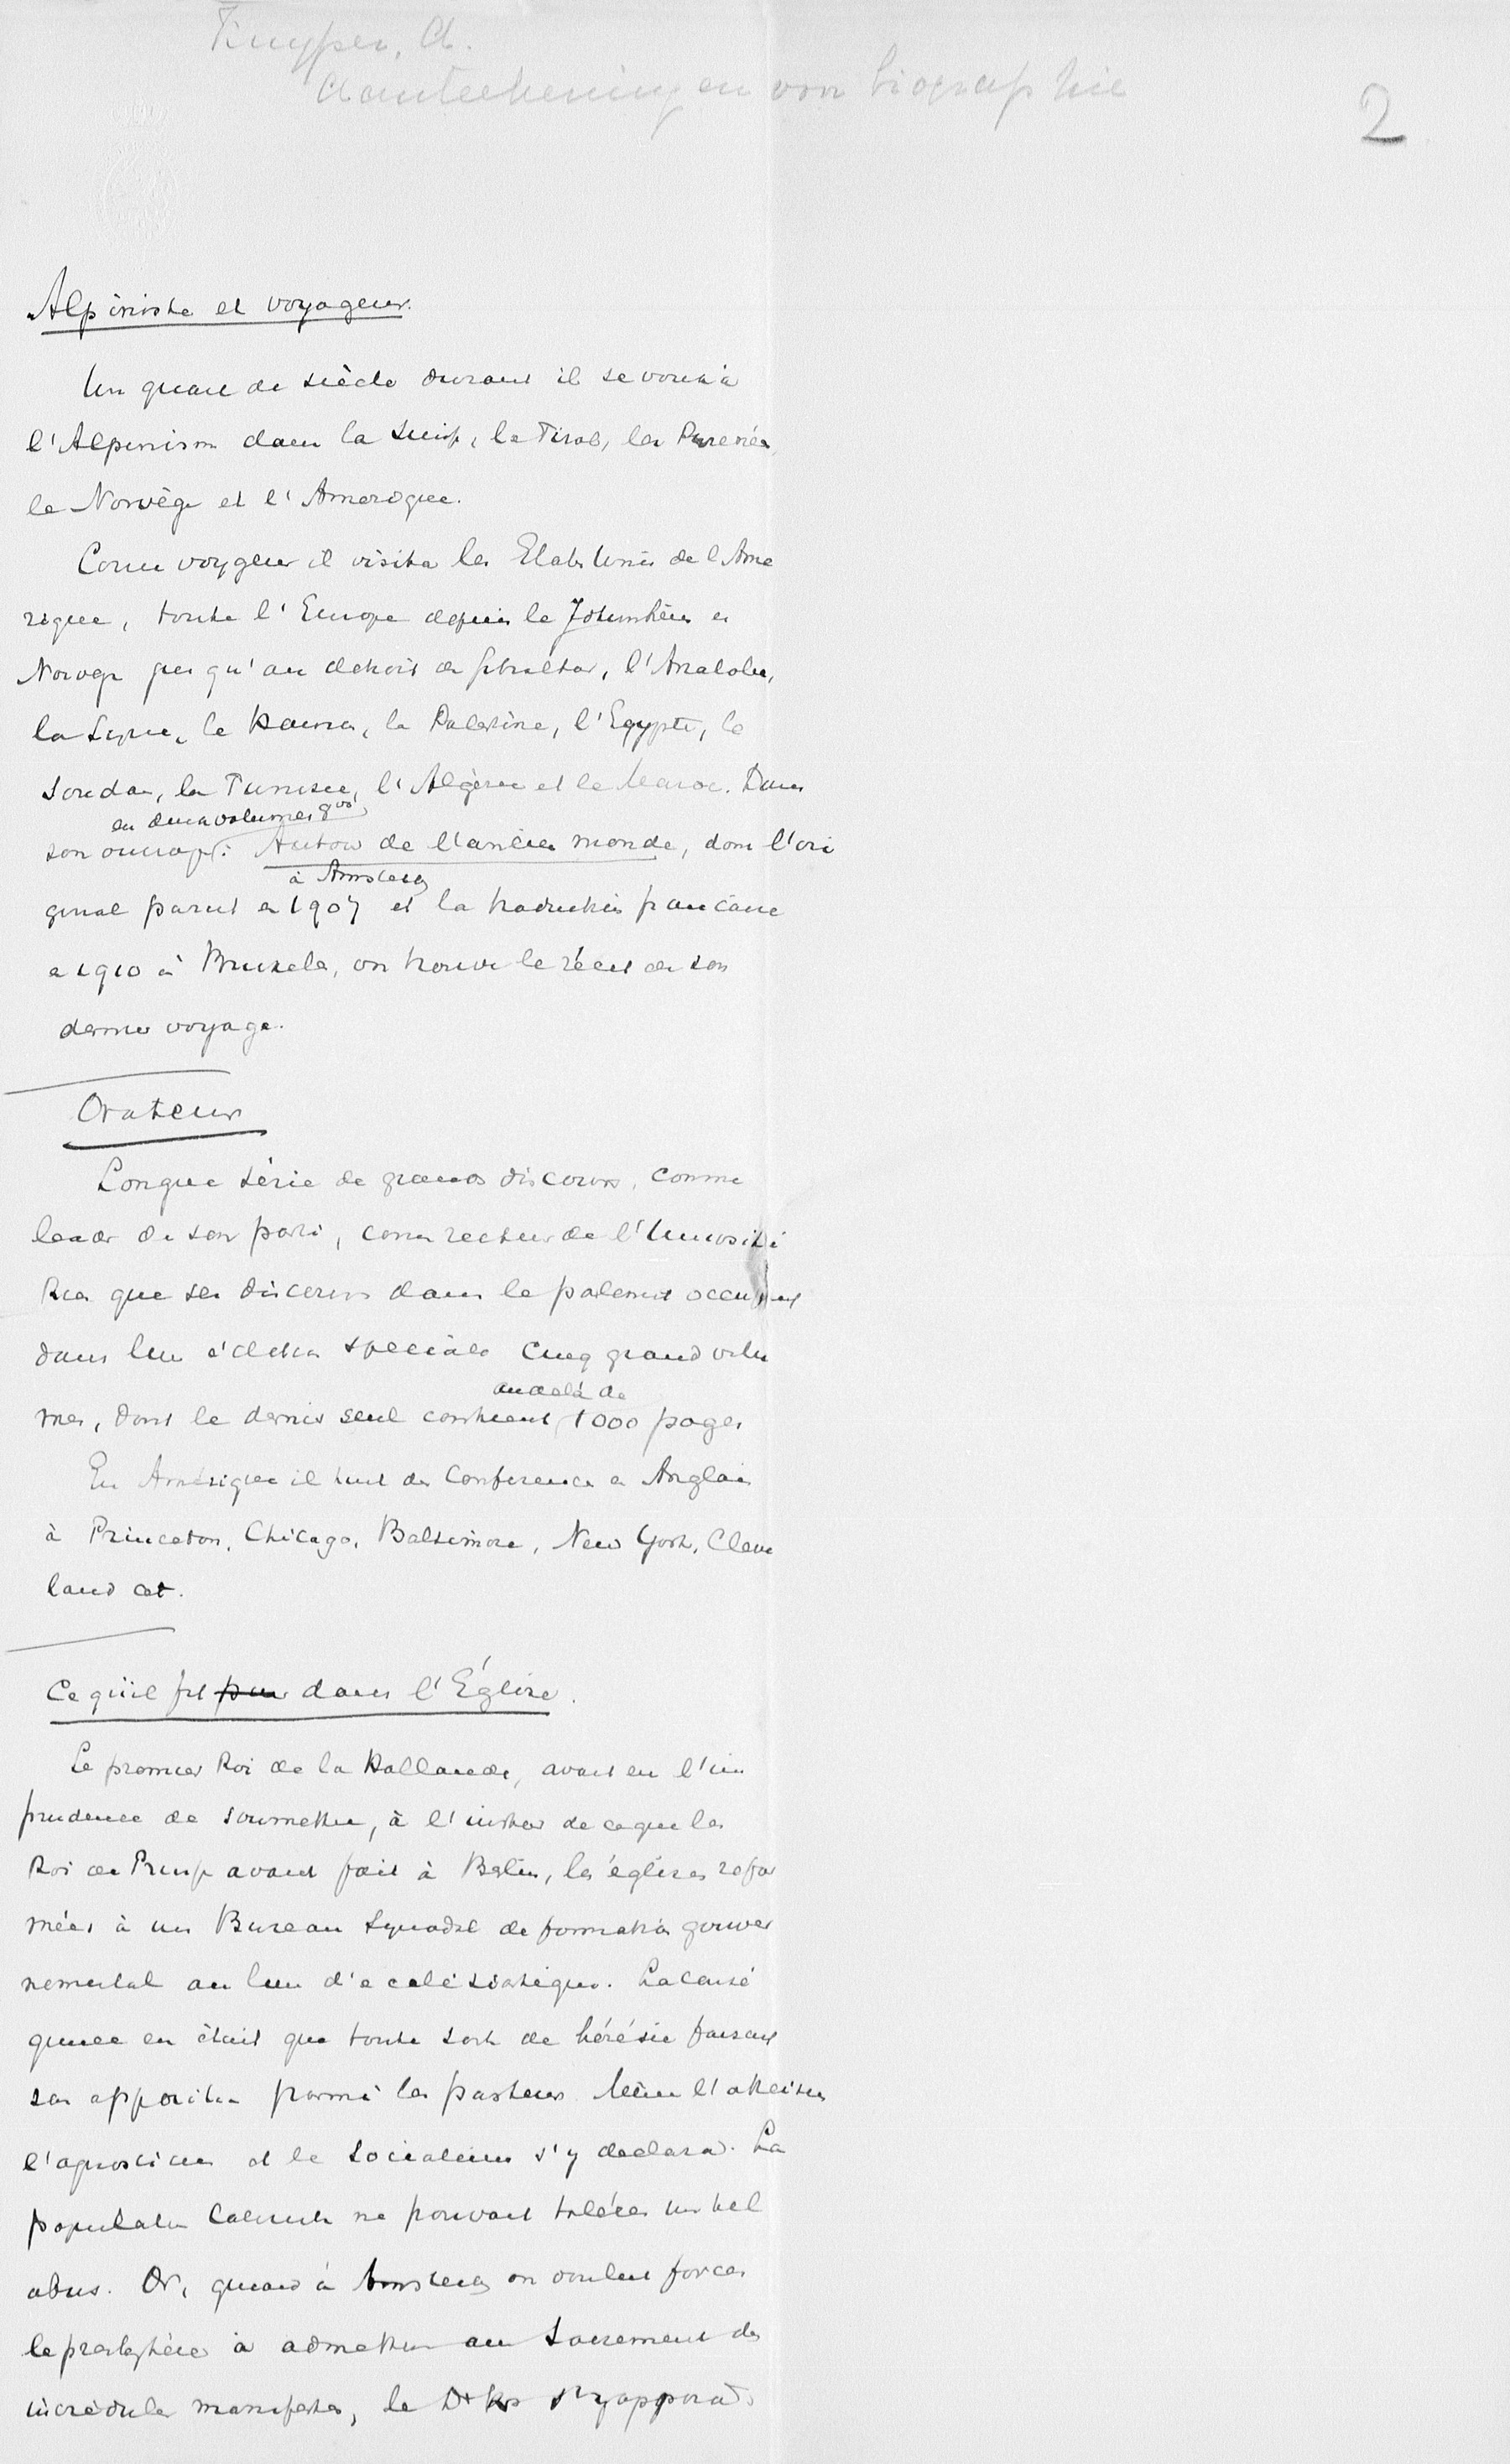 Kuyper, A.
Aanteekeningen voor biographie
2
Alpiniste et voyageur.
Un quart de siècle durant il se voua à
l'Alpinism dans la Suisse, le Tirol, les Pyrenées,
le Norvège et l'Amerique.
Comme voyageur il visita les Etats Unis de l'Ame
rique, toute l'Europe depuis le Jotunheim en
Norvège jusqu'au detroit de Gibraltar, l'Anatolie,
la Syrie, le Hauran, la Palestine, l'Egypte, le
Soudan, la Tunisie, l'Algérie et le Maroc. Dans
en deux volumes 8vo
son ouvrage: Autour de l'ancien monde, dont l'ori
à Amsterdam
ginal parut en 1907 et la traduction française
en 1910 à Bruxelles, on trouve le récit de son
dernier voyage.
Orateur
Longue série de grands discours, comme
leader de son parti, comme recteur de l'Université
Rien que ses discours dans le parlement occupent
dans leur édition speciale cinq grand volu
au delà de
mes, dont le dernier seul contient 1000 pages
En Amérique il tint des Conferences en Anglais
à Princeton, Chicago, Baltimore, New York, Cleve
land cet.
Ce qu'il fit pour dans l'Église.
Le premier Roi de la Hollande, avait eu l'im
prudence de soumettre, à l'instar de ce que les
Roi de Prusse avait fait à Berlin, les églises refor
mées à un Bureau Synodal de formation gouver
nemental au lieu d'ecclésiastique. La consé
quence en était que toute sorte de hérésie faisait
son apparition parmi les pasteurs. Même l'atheisme
l'agnosticisme et le Socialisme s'y declara. La
population Calviniste ne pouvait tolérer un tel
abus. Or, quand à Amsterdam on voulut forcer
le presbytère à admettre au Sacrement des
incrédules manifestes, le Dr K. s'y opposa